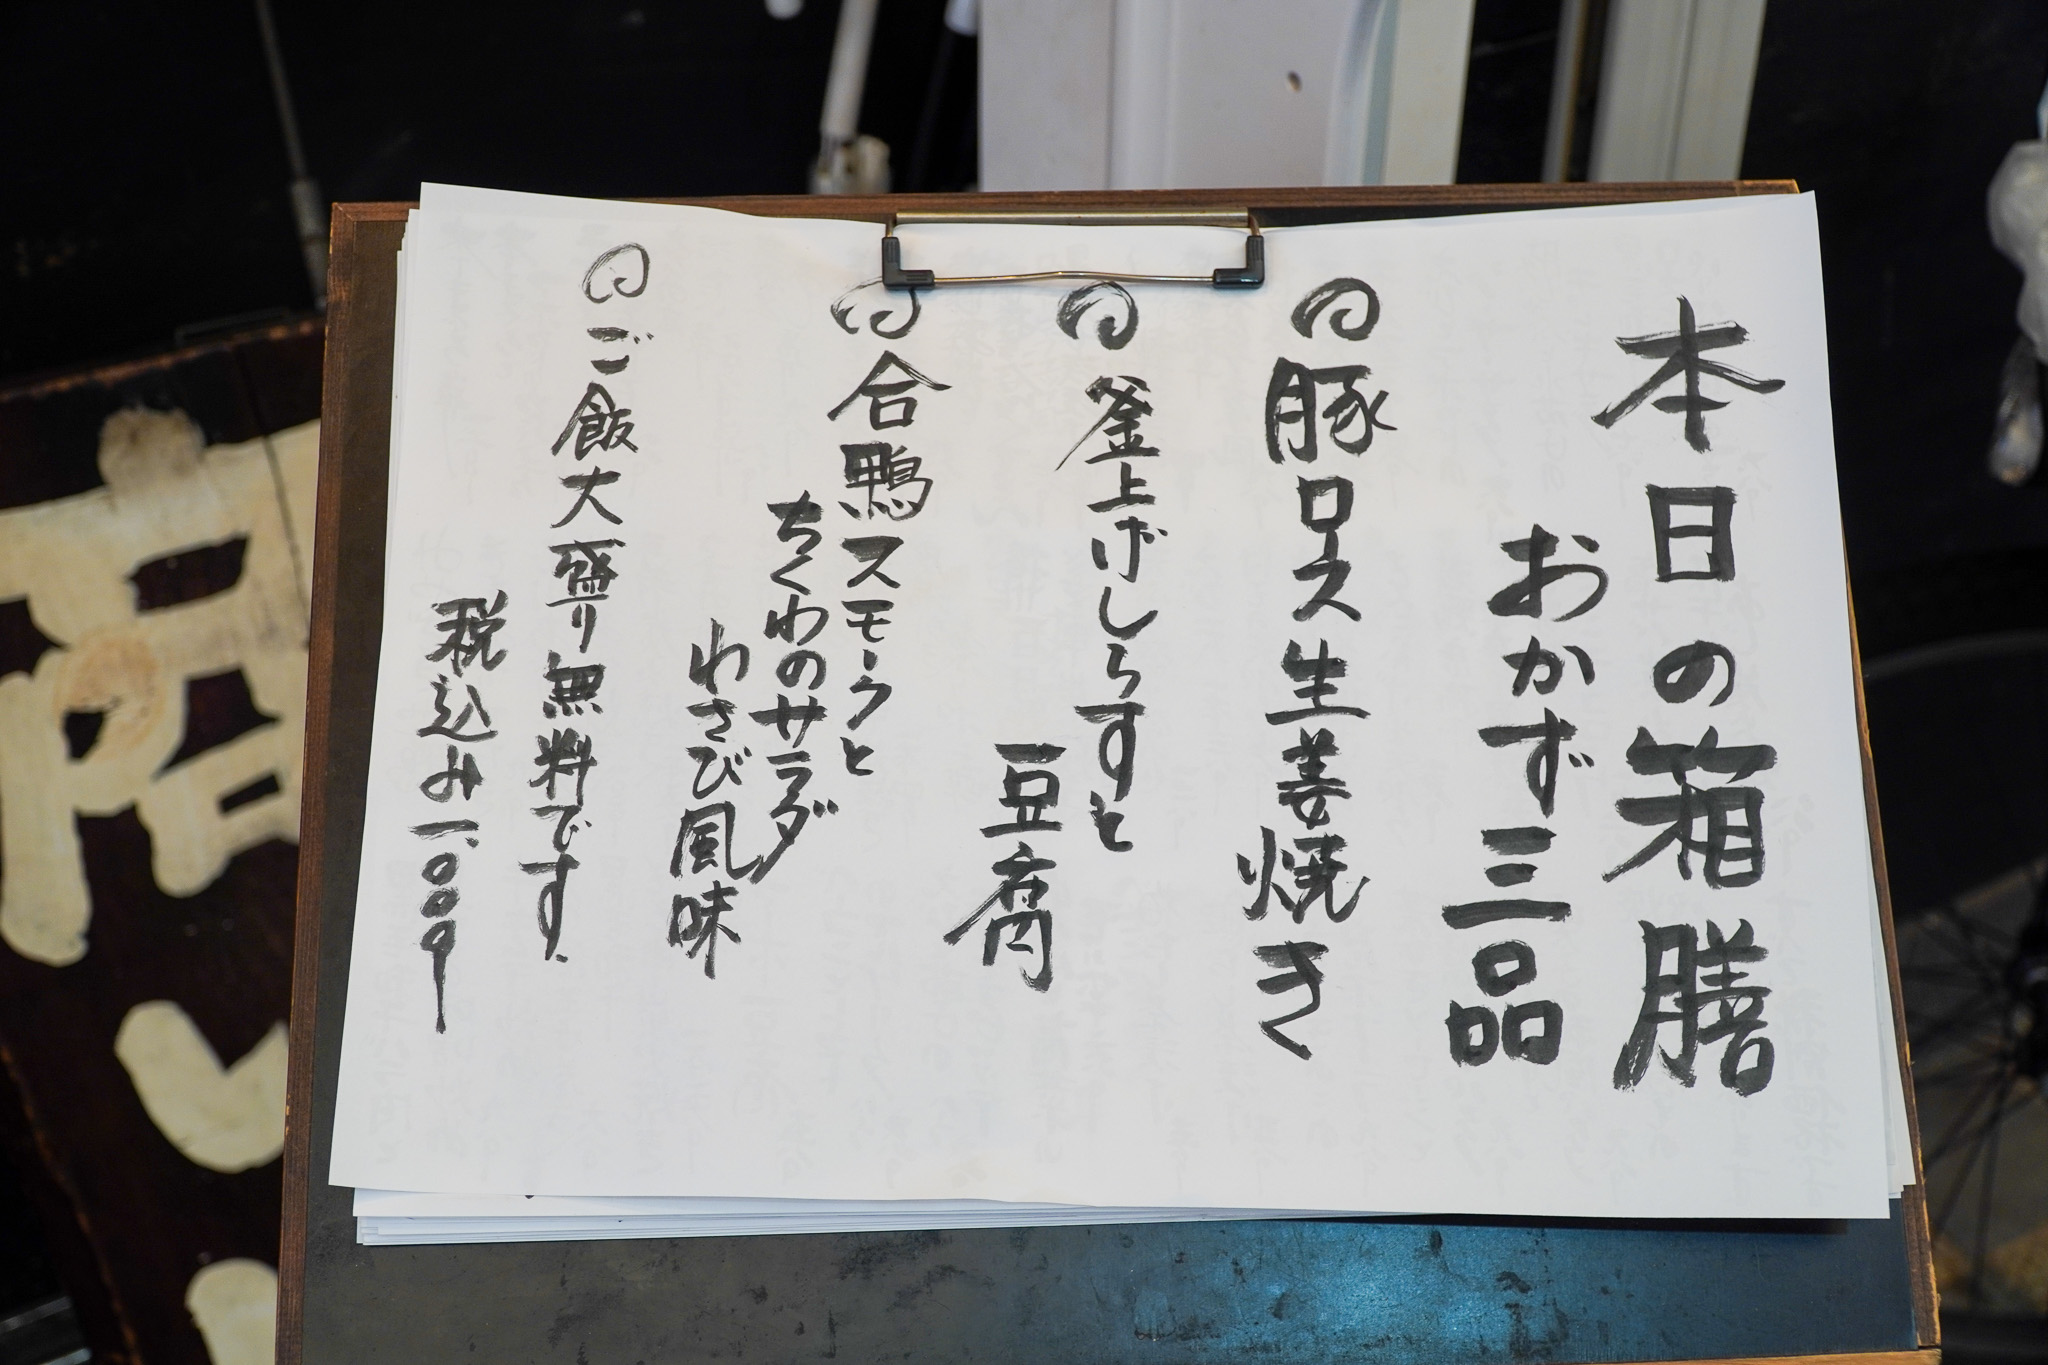 本日の箱膳
おかず三品
豚ロス生姜焼き
釜上げしらすと
豆腐
合鴨スモークと
ちくわのサラダ
わさび風味
ご飯大盛り無料です.
税込み一、〇〇〇